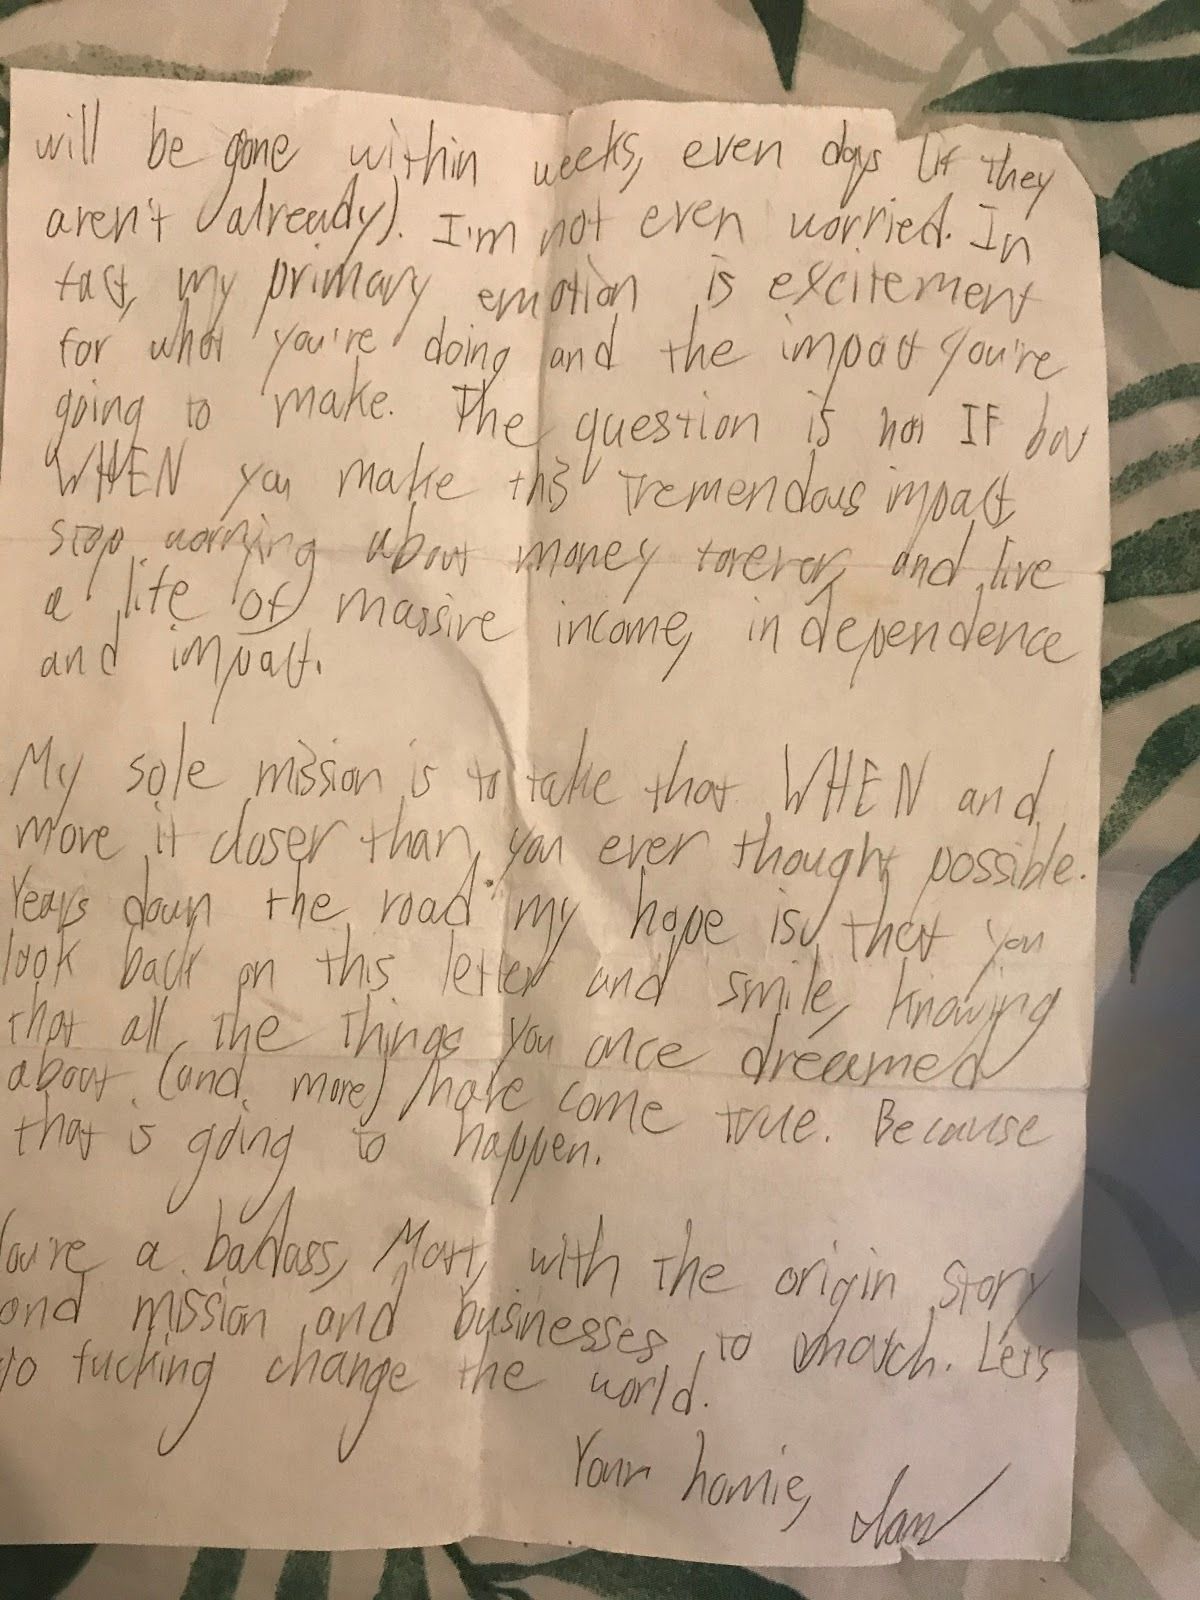 will be gone within weeks, even days (if they
aren't already). I'm not even worried. In
fact, my primary emotion is excitement
for what you're doing and the impact you're
going to make. The question is not IF but
WHEN you make this tremendous impact,
stop worrying about money forever, and live
a life of massive income, independence
and impact.
My sole mission is to take that WHEN and
move it closer than you ever thought possible.
Years down the road my hope is that you
look back on this letter and smile, knowing
that all the things you once dreamed
about (and more) have come true. Because
that is going to happen.
You're a badass, Matt, with the origin story
and mission and businesses to match. Let's
go fucking change the world.
Your homie,